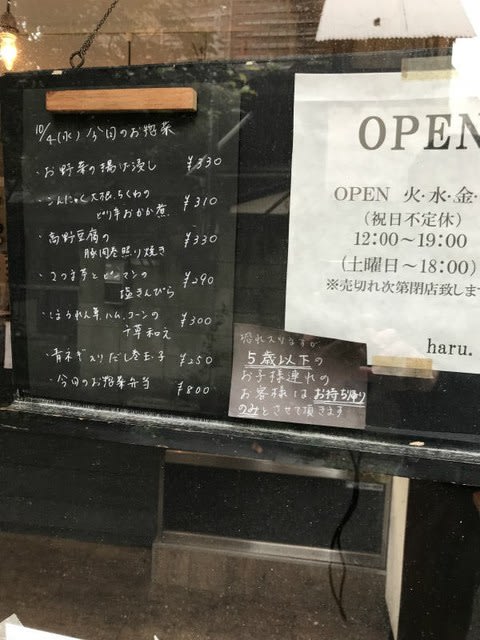 10/4(水) 今日のお惣菜
・お野菜の揚げ浸し ¥330
・こんにゃく大根、ちくわの
ピリ辛おかか煮 ¥310
・高野豆腐の
豚肉巻照り焼き ¥330
・さつま芋とピーマンの
塩きんぴら ¥290
・ほうれん草、ハム、コーンの
千草和え ¥300
・青ネギ入りだし巻玉子 ¥250
・今日のお惣菜弁当 ¥800
OPEN
OPEN 火・水・金・
(祝日不定休)
12:00〜19:00
(土曜日〜18:00)
※売切れ次第閉店致しま
haru.
恐れ入りますが
5歳以下の
お子様連れの
お客様はお持ち帰り
のみとさせて頂きます